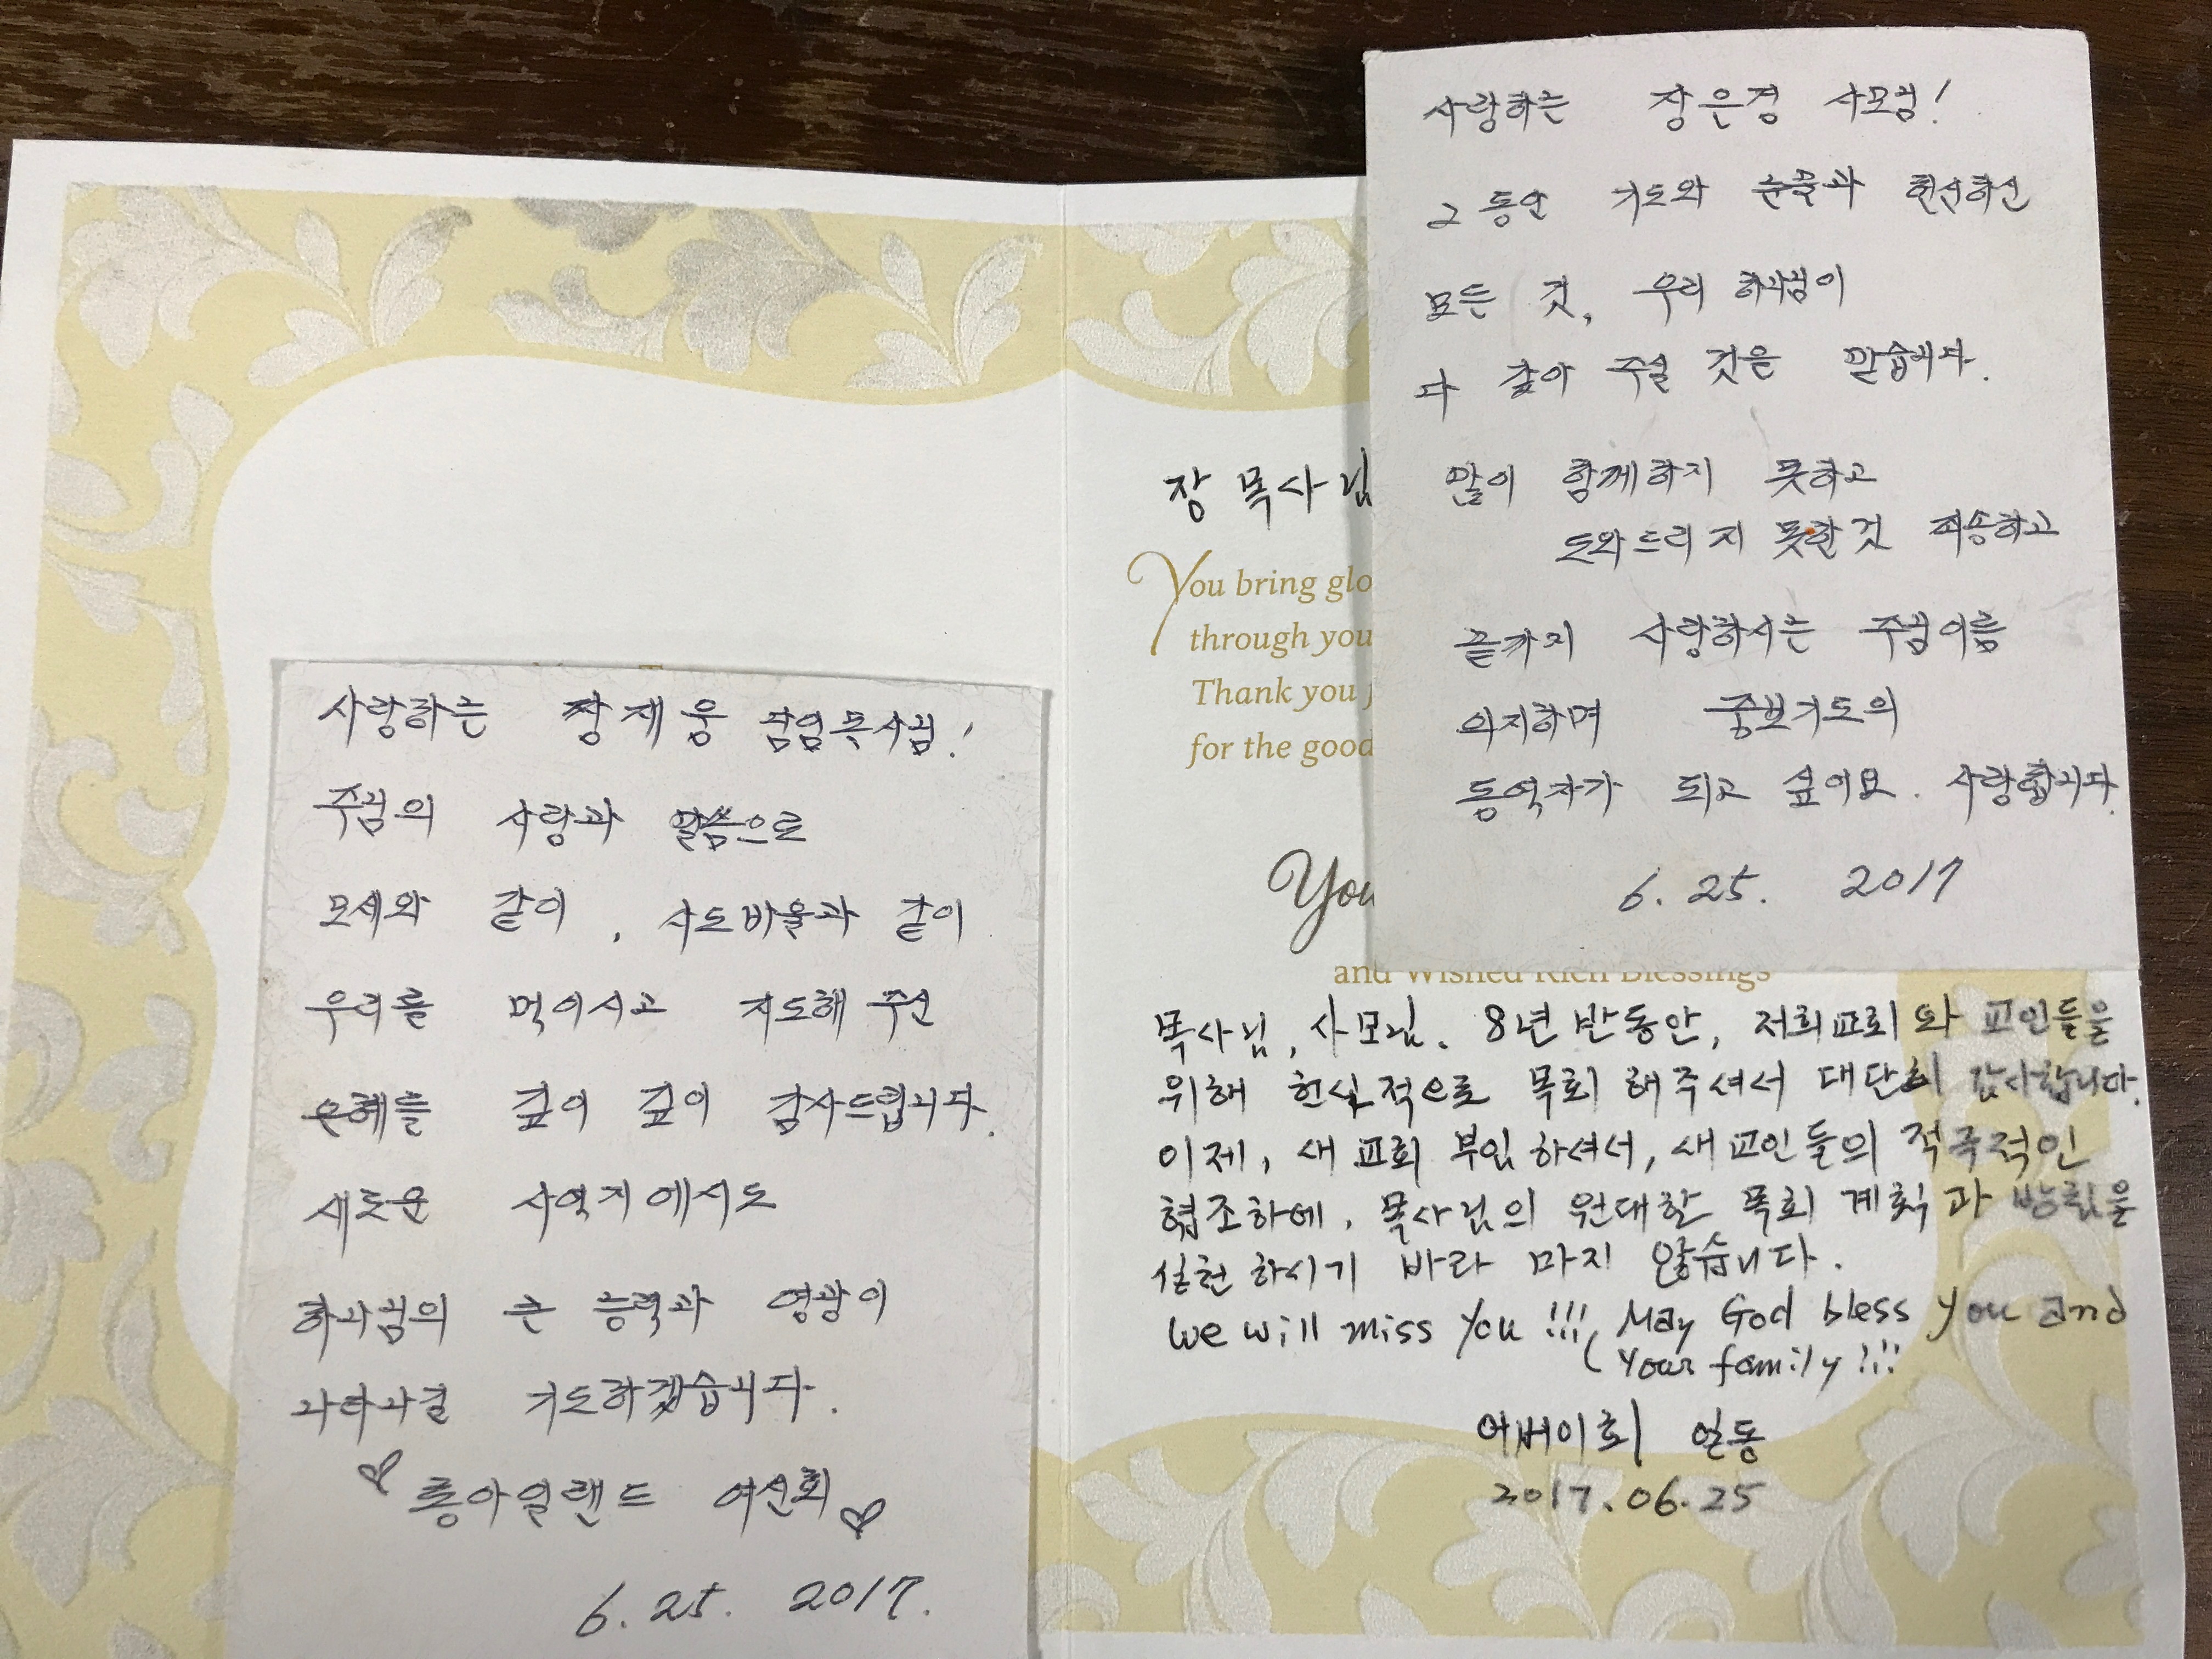 사랑하는 장재웅 담임목사님!
주님의 사랑과 말씀으로
모세와 같이, 사도바울과 같이
우리를 먹이시고 지도해 주신
은혜를 깊이 깊이 감사드립니다.
새로운 사역지에서도
하나님의 큰 능력과 영광이
나타나길 기도하겠습니다.
롱아일랜드 여선회
6. 25. 2017.
장 목사님
You bring glo
through you
Thank you
for the good
You
and Wished Rich Blessings
목사님, 사모님. 8년 반동안, 저희교회와 교인들을
위해 헌신적으로 목회 해주셔서 대단히 감사합니다.
이제, 새 교회 부임 하셔서, 새 교인들의 적극적인
협조하에, 목사님의 원대한 목회 계획과 방침을
실천 하시기 바라 마지 않습니다.
We will miss you !!! May God bless you and
your family !!!
어버이회 일동
2017.06.25
사랑하는 장은경 사모님!
그 동안 기도와 눈물과 헌신하신
모든 것, 우리 하나님이
다 갚아 주실 것은 믿습니다.
많이 함께하지 못하고
도와드리지 못한것 죄송하고
끝까지 사랑하시는 주님이름
의지하며 중보기도의
동역자가 되고 싶어요. 사랑합니다.
6. 25. 2017